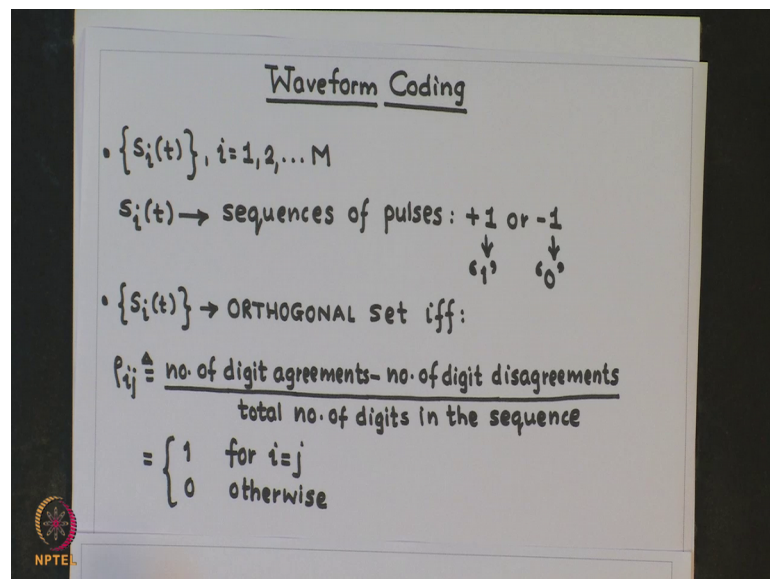 Waveform Coding
• {Si(t)}, i=1,2,... M
Si(t) → sequences of pulses: +1 or -1
↓ ↓
'1' '0'
• {Si(t)} → ORTHOGONAL set iff:
ρij ≜ no. of digit agreements – no. of digit disagreements
total no. of digits in the sequence
= { 1 for i=j
0 otherwise
NPTEL